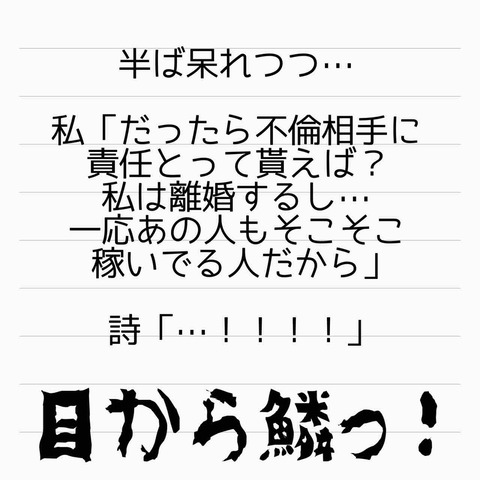 半ば呆れつつ…
私「だったら不倫相手に
責任とって貰えば？
私は離婚するし…
一応あの人もそこそこ
稼いでる人だから」
詩「…！！！！」
目から鱗っ！